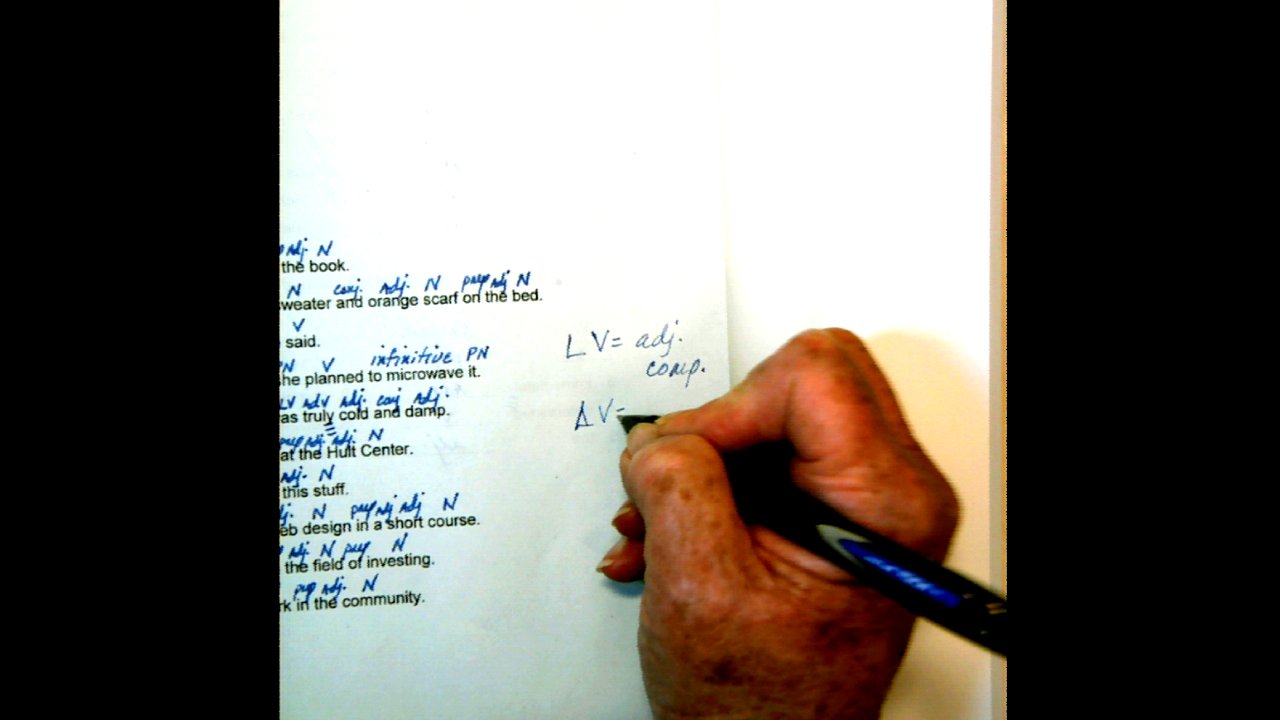 adj. N
the book.
N conj. adj. N prep adj N
sweater and orange scarf on the bed.
V
said.
LV= adj.
PN V infinitive PN
she planned to microwave it.
comp.
LV adv adj. conj adj.
as truly cold and damp.
AV=
prep adj. adj. N
at the Hult Center.
adj. N
this stuff.
j. N prep adj adj N
eb design in a short course.
adj. N prep N
the field of investing.
prep adj. N
rk in the community.